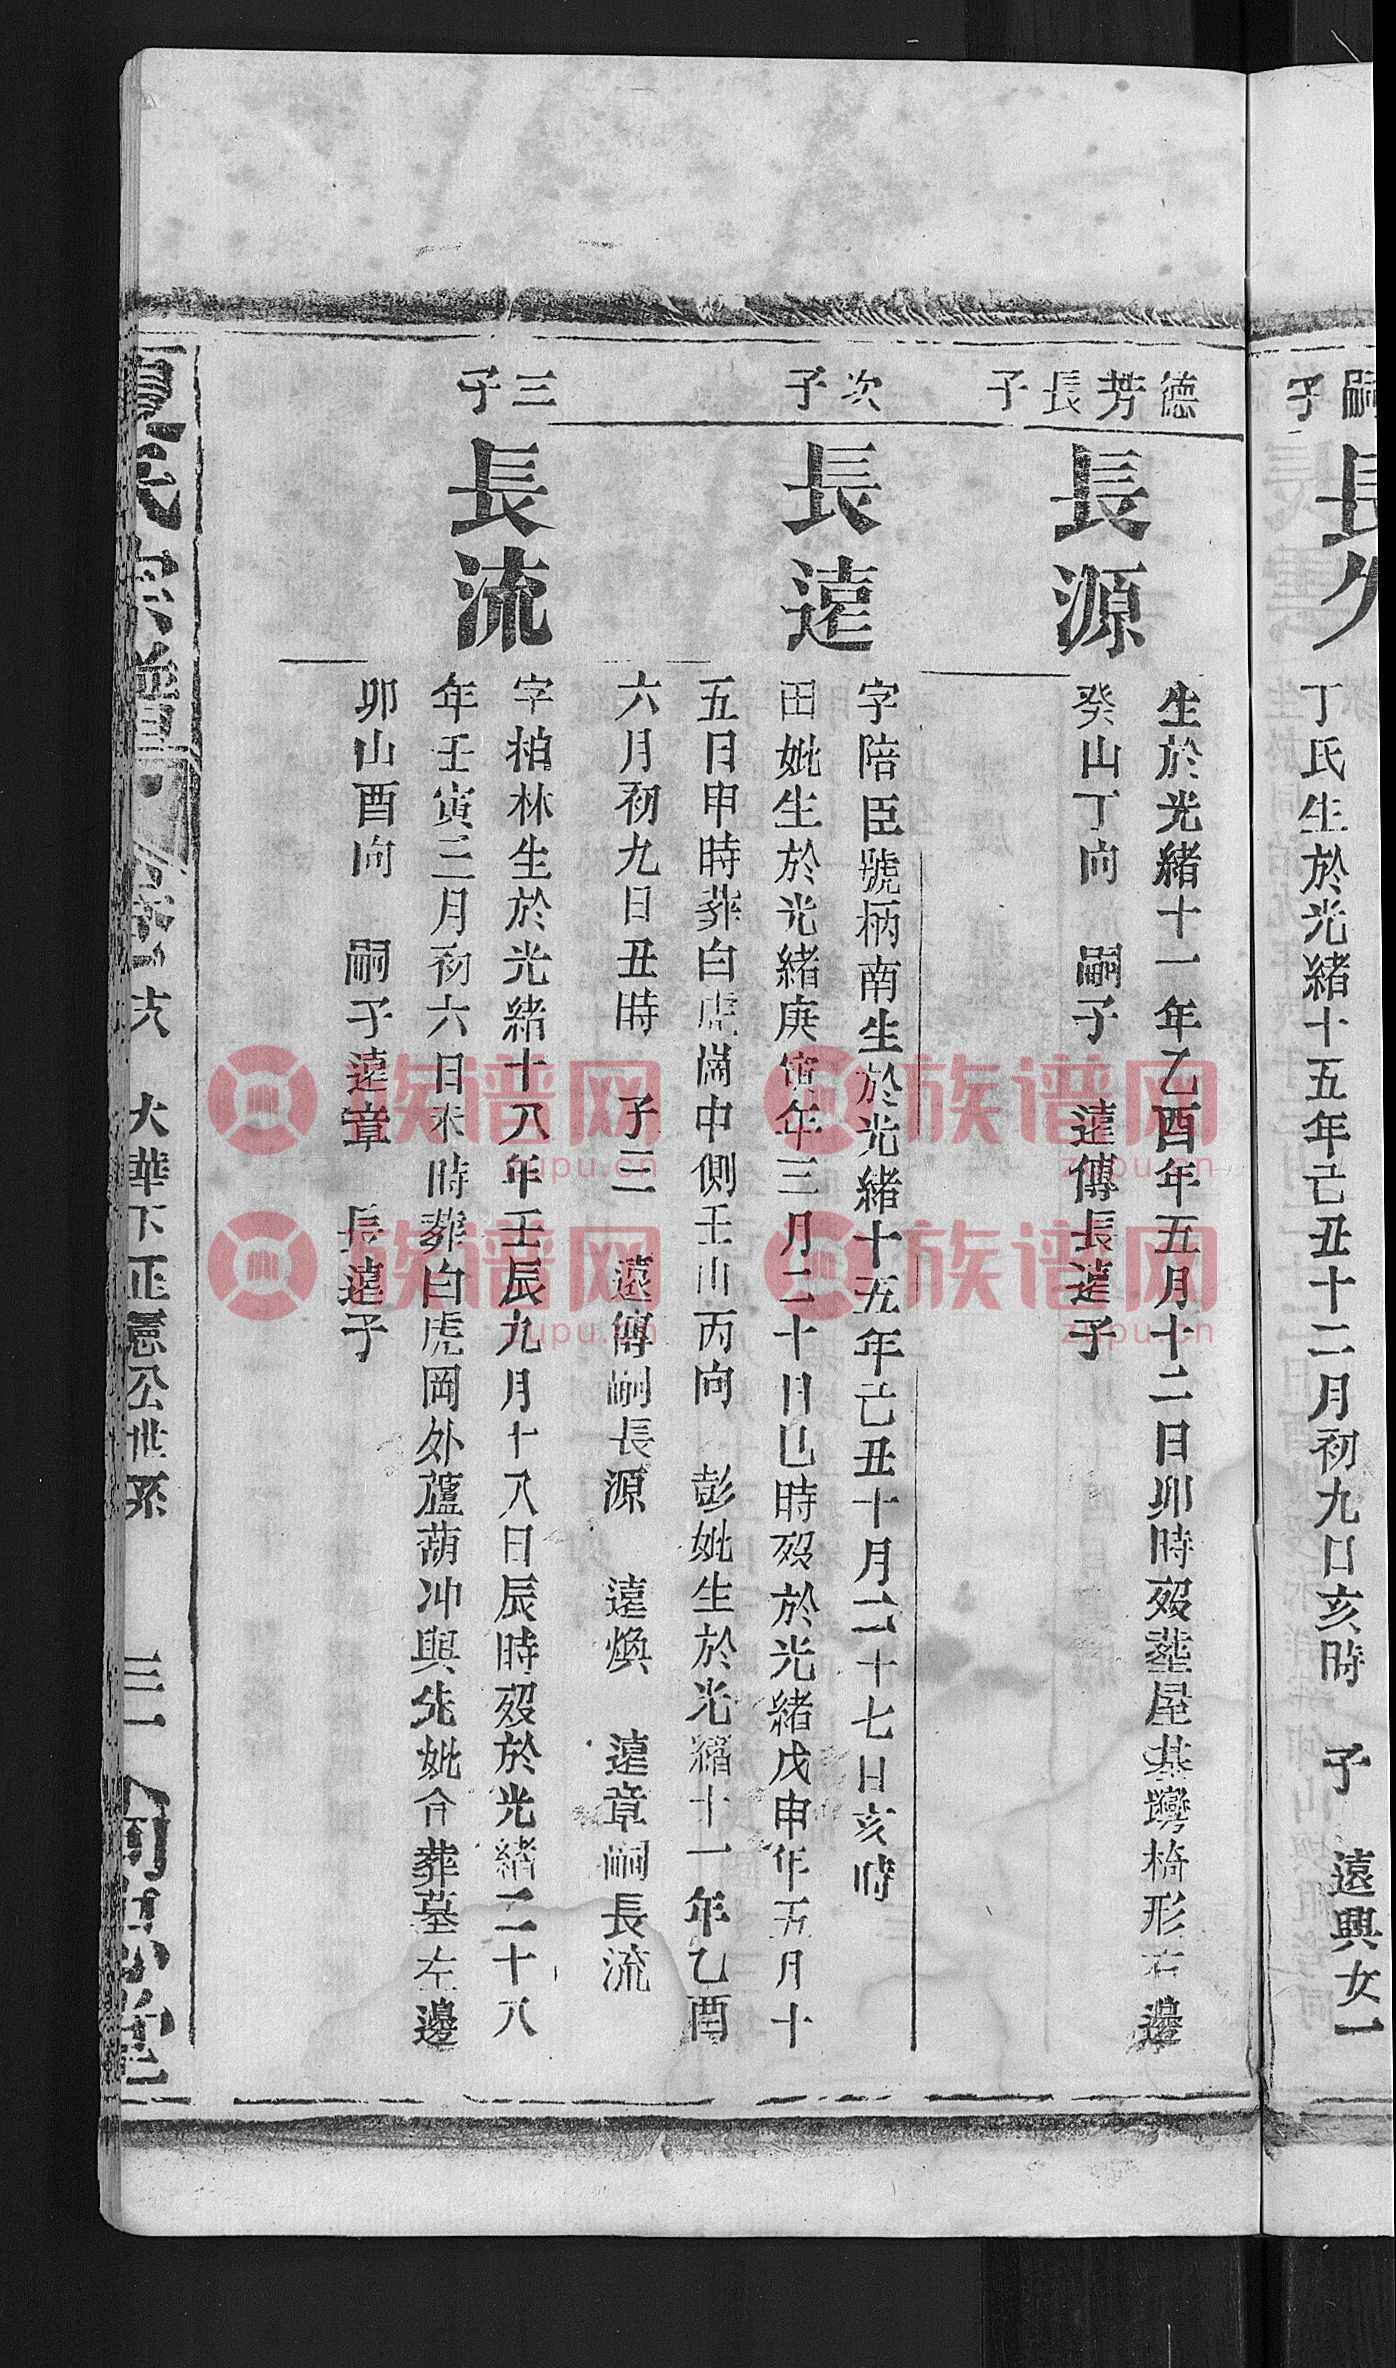 嗣子
長久
丁氏生於光緒十五年己丑十二月初九日亥時　子　遠興女一
德芳長子
長源
生於光緒十一年乙酉年五月十二日卯時歿塟屋基灣椅形右邊
癸山丁向　嗣子　遠傳長遠子
次子
長遠
字陪臣號柄南生於光緒十五年己丑十月二十七日亥時
田妣生於光緒庚寅年三月二十日巳時歿於光緒戊申年五月十
五日申時葬白虎崗中側壬山丙向　彭妣生於光緒十一年乙酉
六月初九日丑時　子三　遠傳嗣長源　遠煥　遠章嗣長流
三子
長流
字柏林生於光緒十八年壬辰九月十八日辰時歿於光緒二十八
年壬寅三月初六日未時葬白虎岡外蘆葫冲與先妣合葬墓左邊
卯山酉向　嗣子遠章　長遠子
氏宗譜
大華下正憲公世系
三一
族谱网
zupu.cn
族谱网
zupu.cn
族谱网
zupu.cn
族谱网
zupu.cn